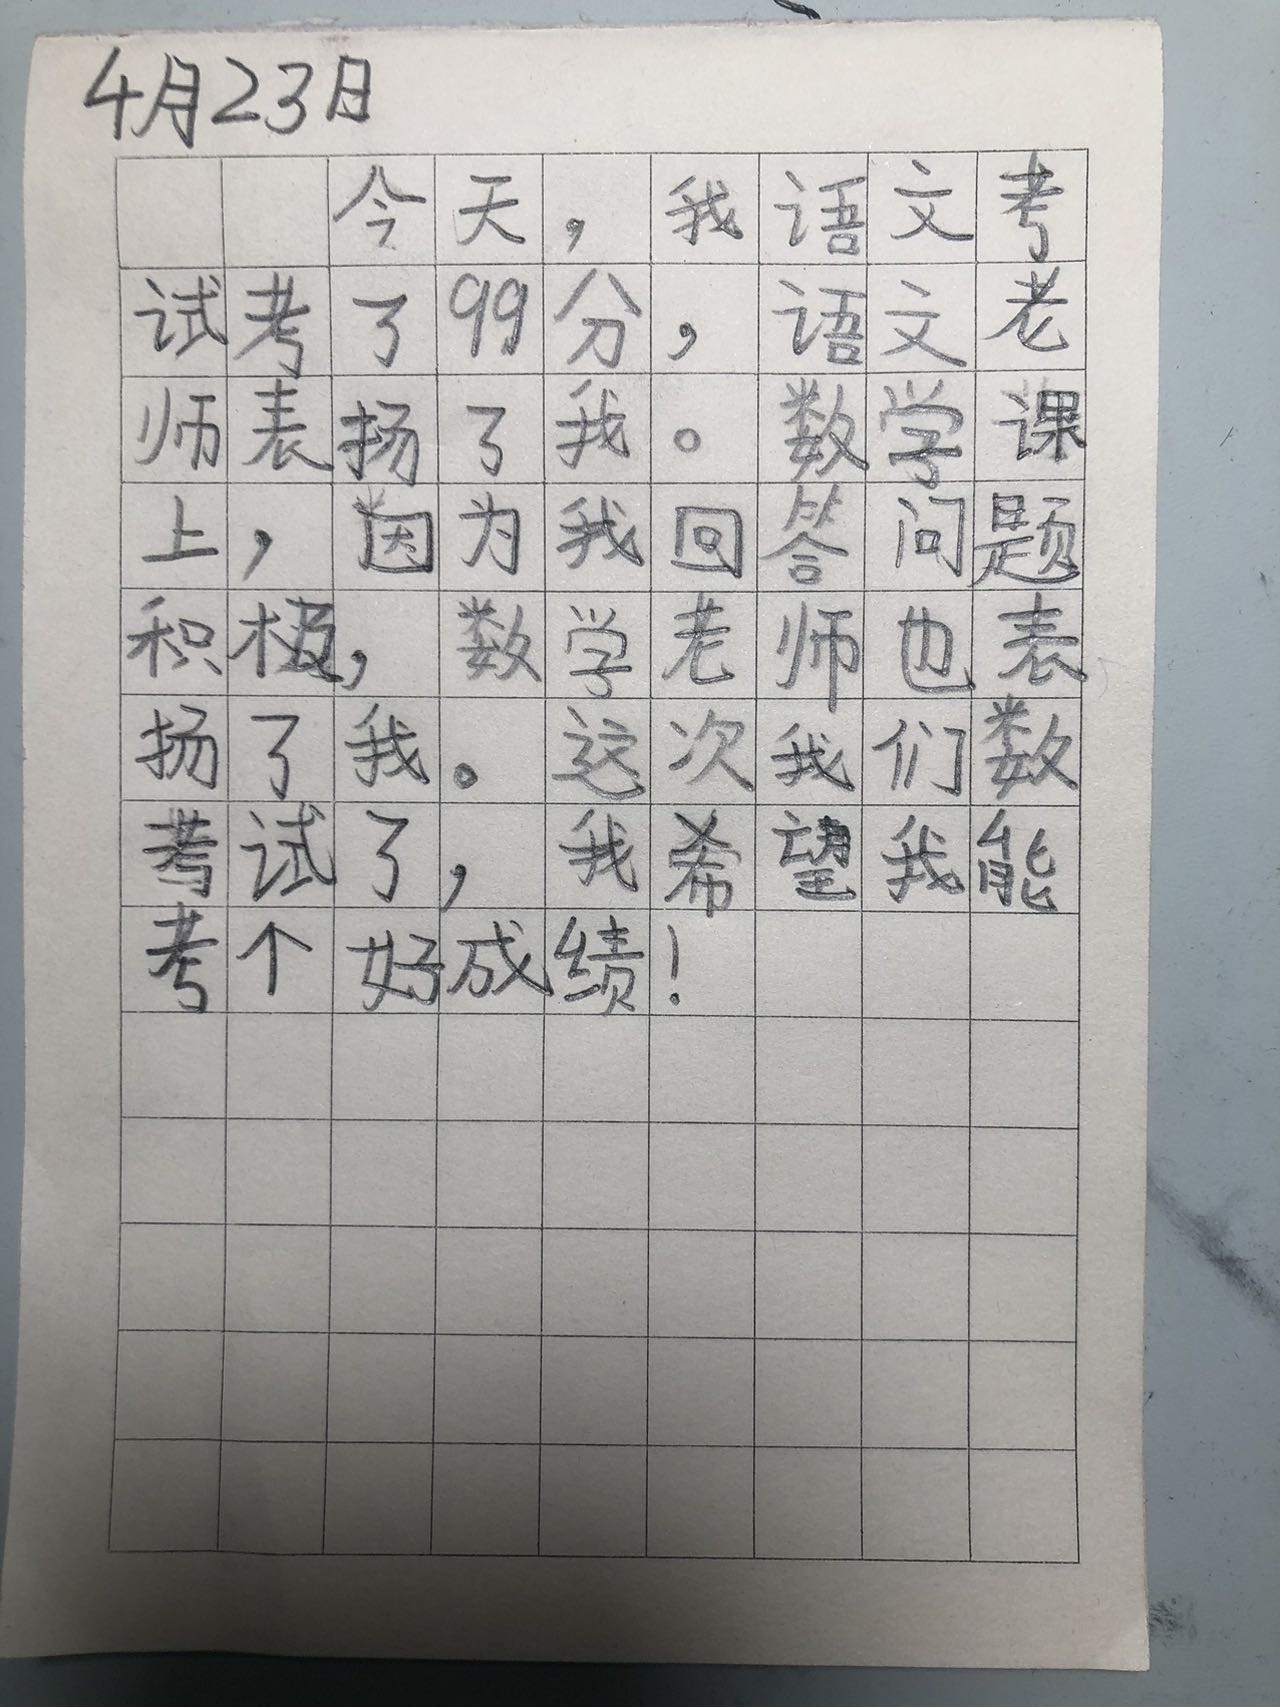 4月23日
今天，我语文考
试考了99分，语文老
师表扬了我。数学课
上，因为我回答问题
积极，数学老师也表
扬了我。这次我们数
考试了，我希望我能
考个好成绩！